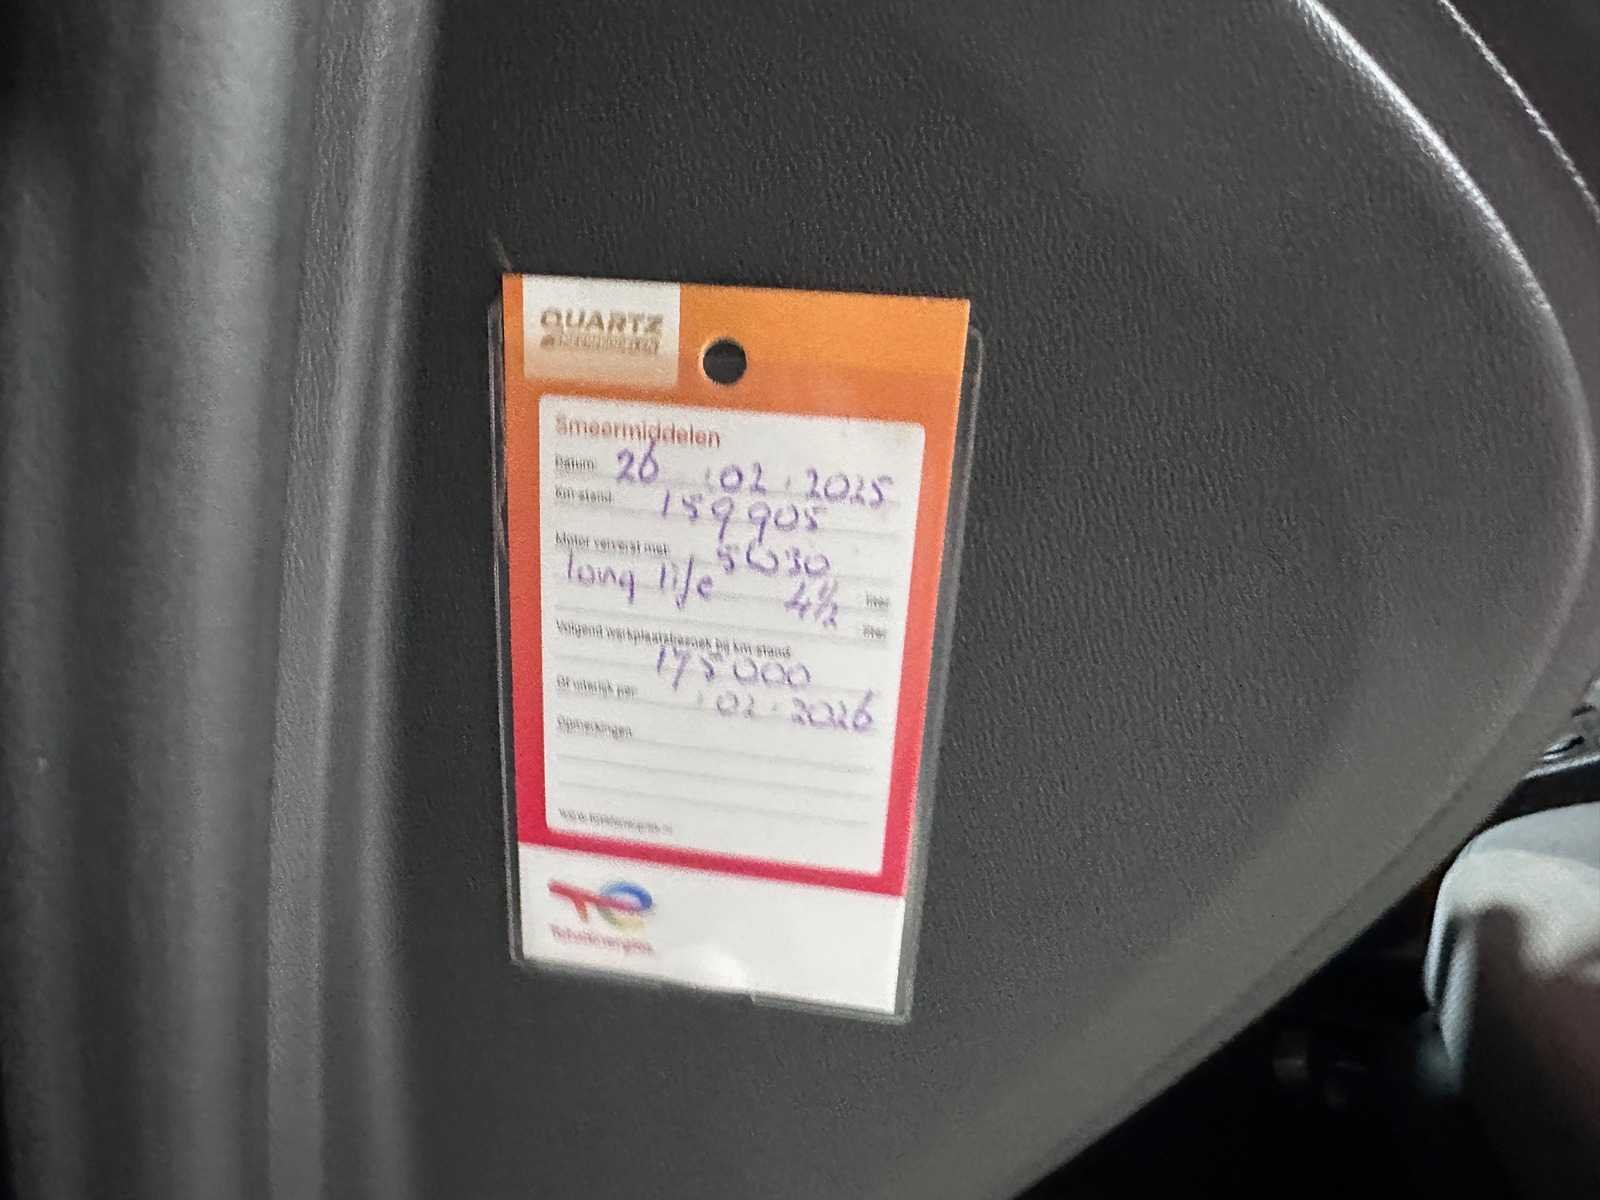 QUARTZ
Smeermiddelen
Datum: 26 . 02 . 2025
Km-stand: 159905
Motor ververst met: 5W30
long life 4½ liter
liter
Volgend werkplaatsbezoek bij km-stand:
175000
Of uiterlijk per: . 02 . 2026
Opmerkingen
www.totalenergies.nl
TotalEnergies